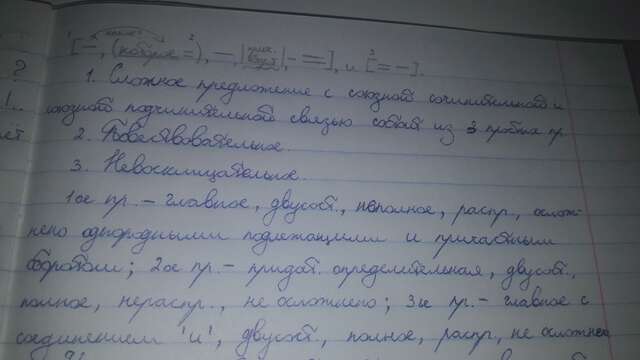 [—, (которое =), —, |прич. оборот|, — =], и [= —].
1. Сложное предложение с союзной сочинительной и
союзной подчинительной связью состоит из 3 простых пр.
2. Повествовательное.
3. Невосклицательное.
1ое пр. – главное, двусост., неполное, распр., ослож-
нено однородными подлежащими и причастным
оборотом; 2ое пр. – придат. определительная, двусост.,
полное, нераспр., не осложнено; 3ье пр. – главное с
соединением "и", двусост., полное, распр, не осложнено